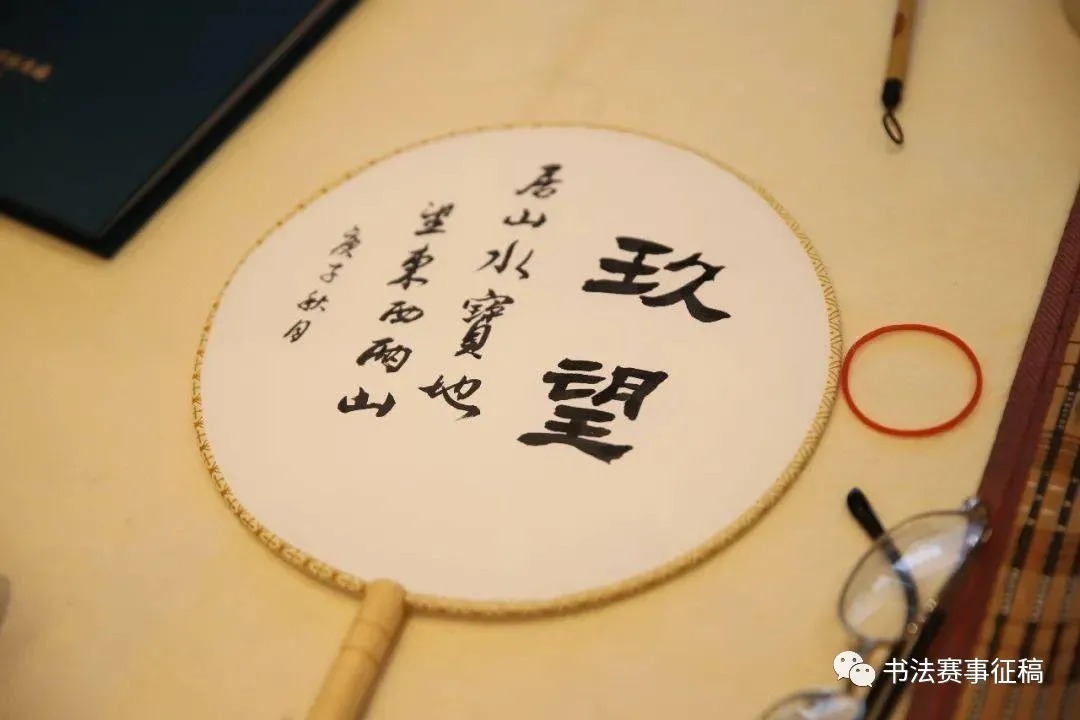 玖望
居山水寶地
望東西兩山
庚子秋月
书法赛事征稿